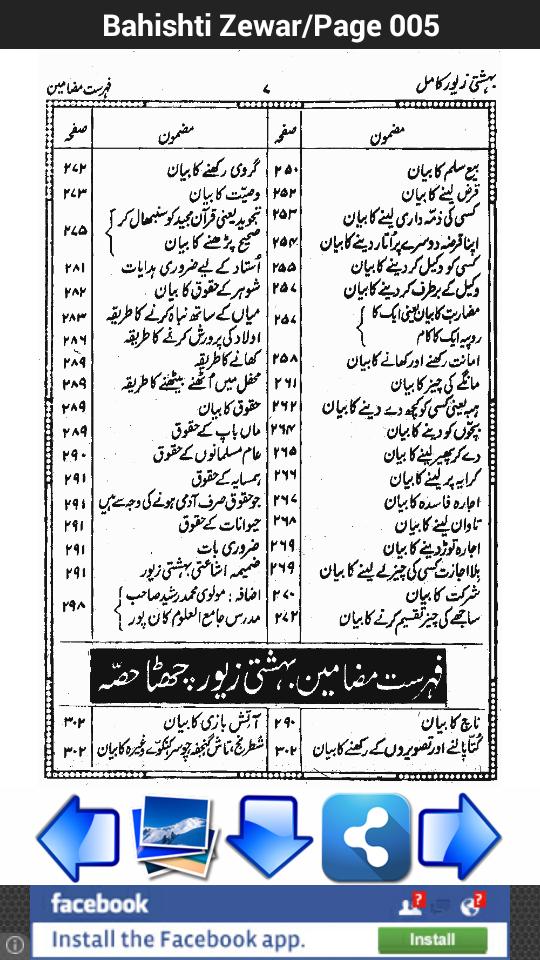 Bahishti Zewar/Page 005
بہشتی زیور کامل
۷
فہرست مضامین
مضمون
صفحہ
مضمون
صفحہ
بیع سلم کا بیان ۲۵۰
قرض لینے کا بیان ۲۵۲
کسی کی ذمّہ داری لینے کا بیان ۲۵۳
اپنا قرضہ دوسرے پر اُتار دینے کا بیان ۲۵۴
کسی کو وکیل کر دینے کا بیان ۲۵۵
وکیل کے برطرف کر دینے کا بیان ۲۵۷
مضاربت کا بیان یعنی ایک کا
روپیہ ایک کا کام ۲۵۷
امانت رکھنے اور رکھانے کا بیان ۲۵۸
مانگے کی چیز کا بیان ۲۶۱
ہبہ یعنی کسی کو کچھ دے دینے کا بیان ۲۶۲
بچّوں کو دینے کا بیان ۲۶۴
دے کر پھیر لینے کا بیان ۲۶۵
کرایہ پر لینے کا بیان ۲۶۶
اجارہ فاسدہ کا بیان ۲۶۷
تاوان لینے کا بیان ۲۶۸
اجارہ توڑ دینے کا بیان ۲۶۹
بلا اجازت کسی کی چیز لے لینے کا بیان ۲۶۹
شرکت کا بیان ۲۷۰
ساجھے کی چیز تقسیم کرنے کا بیان ۲۷۲
گروی رکھنے کا بیان ۲۷۲
وصیّت کا بیان ۲۷۳
تجوید یعنی قرآن مجید کو سنبھال کر
صحیح پڑھنے کا بیان ۲۷۵
اُستاد کے لیے ضروری ہدایات ۲۸۱
شوہر کے حقوق کا بیان ۲۸۲
میاں کے ساتھ نباہ کرنے کا طریقہ ۲۸۳
اولاد کی پرورش کرنے کا طریقہ ۲۸۶
کھانے کا طریقہ ۲۸۹
محفل میں اُٹھنے بیٹھنے کا طریقہ ۲۸۹
حقوق کا بیان ۲۸۹
ماں باپ کے حقوق ۲۸۹
عام مسلمانوں کے حقوق ۲۹۰
ہمسایہ کے حقوق ۲۹۱
جو حقوق صرف آدمی ہونے کی وجہ سے ہیں ۲۹۱
حیوانات کے حقوق ۲۹۱
ضروری بات ۲۹۱
ضمیمہ اشاعتی بہشتی زیور ۲۹۱
اضافہ: مولوی محمد رشید صاحب
مدرس جامع العلوم کان پور ۲۹۸
فہرست مضامین بہشتی زیور چھٹا حصّہ
ناچ کا بیان ۲۹۰
کتّا پالنے اور تصویروں کے رکھنے کا بیان ۳۰۲
آتش بازی کا بیان ۳۰۲
شطرنج، تاش گنجفہ چوسر کنکوّے وغیرہ کا بیان ۳۰۲
facebook
Install the Facebook app.
Install